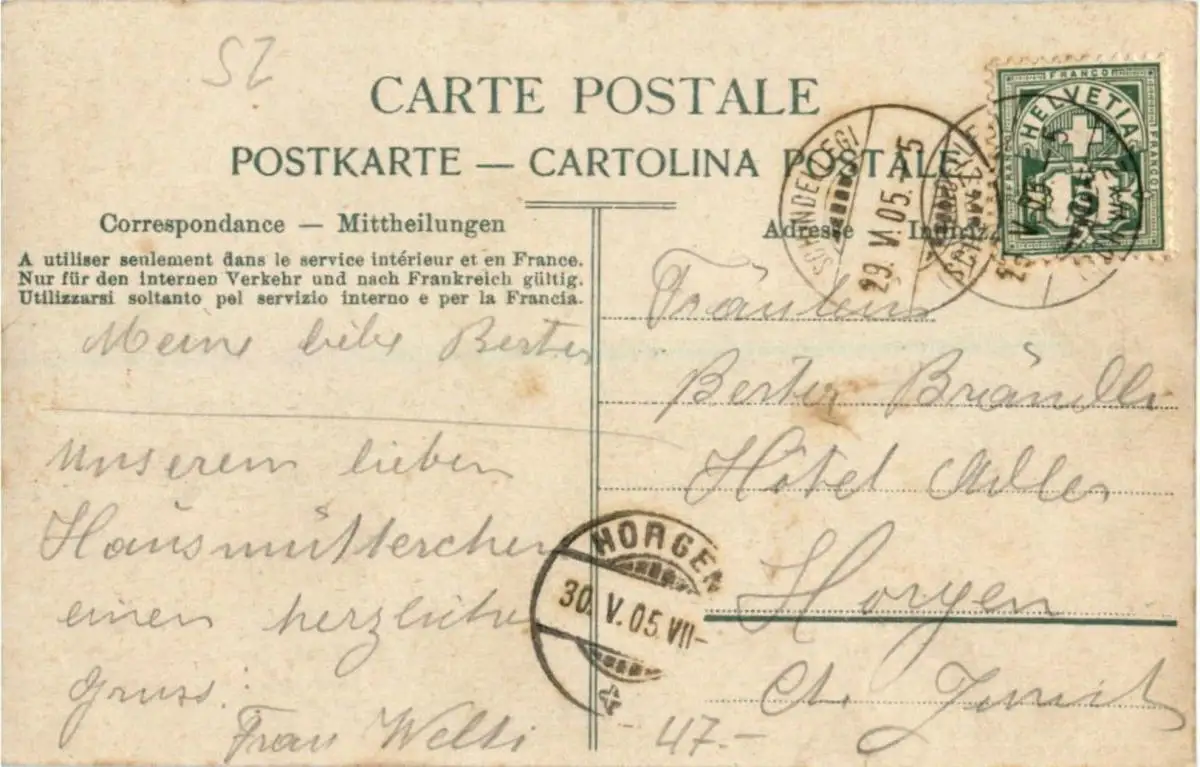 SZ
CARTE POSTALE
POSTKARTE — CARTOLINA POSTALE
Correspondance — Mittheilungen
A utiliser seulement dans le service intérieur et en France.
Nur für den internen Verkehr und nach Frankreich gültig.
Utilizzarsi soltanto pel servizio interno e per la Francia.
Meine liebe
Unserem lieben
Hausmütterchen
einen herzlichen
Gruss.
Frau Welti
Adresse
SCHINDELLEGI
29. V. 05. 5
FRANCO
HELVETIA
FRANCO
5
Fräulein
Brändli
Hôtel Adler
Horgen
Ct. Zürich
HORGEN
30. V. 05. VII-
47.-